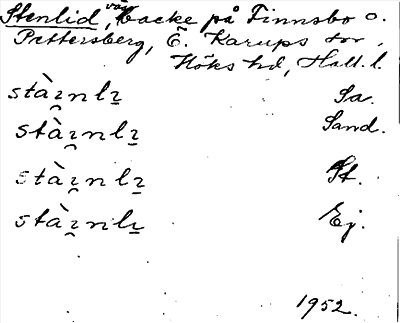 Stenlid, väg backe på Finnsbo o.
Pettersberg, Ö. Karups sn,
Höks hd, Hall. l.
stà̯ɪnlɪ̠ Sa.
stà̯ɪnlɪ̠ Sand.
stà̯ɪnlɪ̠ St.
stà̯ɪnlɪ̠ Ej.
1952.